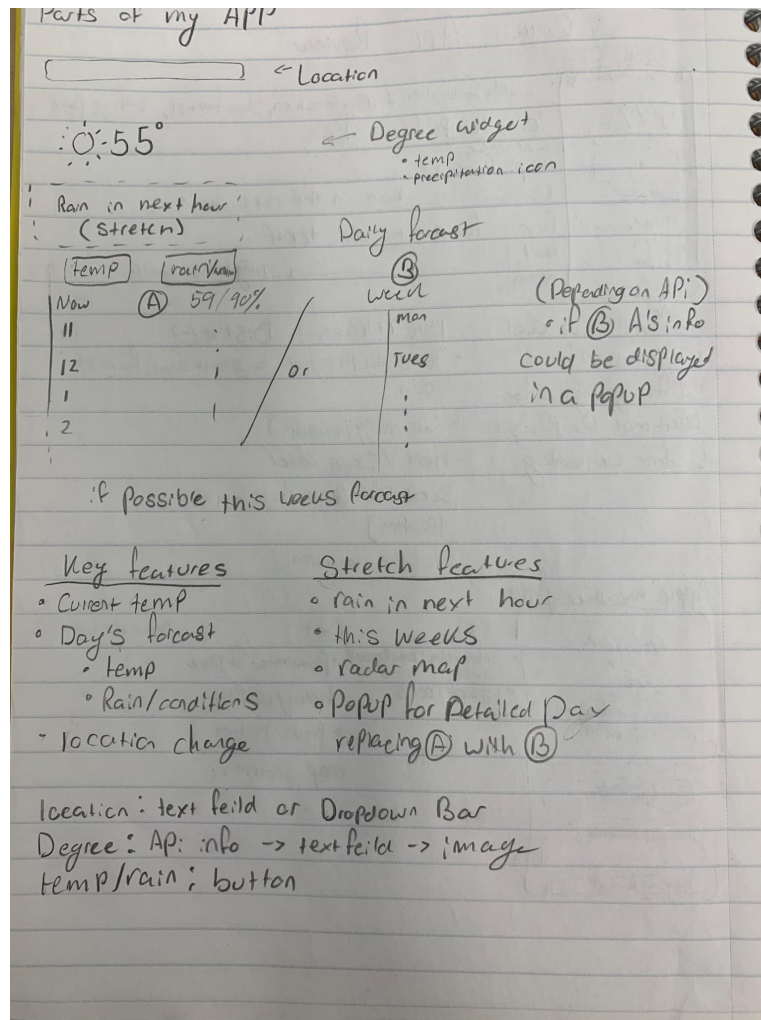 Parts of my APP
← Location
55°
← Degree widget
• temp
• precipitation icon
Rain in next hour
(Stretch)
Daily forcast
temp
Now
11
12
1
2
Ⓐ 59/90%
or
Ⓑ
week
mon
Tues
(Depending on APi)
• if Ⓑ A's info
could be displayed
in a PoPuP
if possible this weeks forcast
Key features
• Current temp
• Day's forcast
• temp
• Rain/conditions
- location change
Stretch features
• rain in next hour
• this weeks
• radar map
• PoPuP for Detailed Day
replacing Ⓐ with Ⓑ
location: text feild or Dropdown Bar
Degree: APi info -> textfeild -> image
temp/rain: button